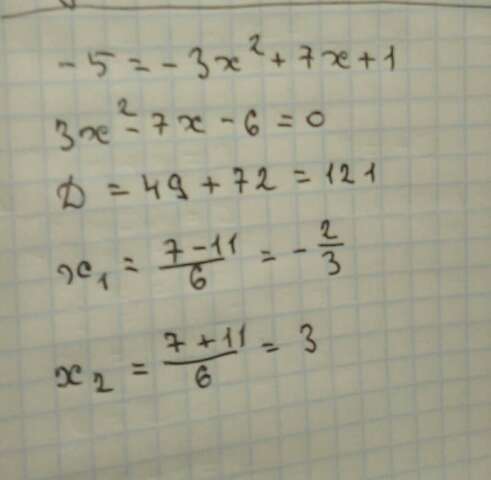 -5 = -3x² + 7x + 1
3x² - 7x - 6 = 0
D = 49 + 72 = 121
x₁ = (7 - 11)/6 = -2/3
x₂ = (7 + 11)/6 = 3